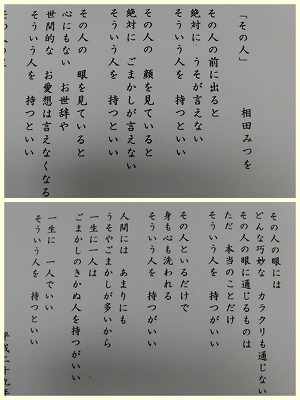 「その人」
相田みつを
その人の前に出ると
絶対に うそが言えない
そういう人を 持つといい
その人の 顔を見ていると
絶対に ごまかしが言えない
そういう人を 持つといい
その人の 眼を見ていると
心にもない お世辞や
世間的な お愛想は言えなくなる
そういう人を 持つといい
その人の眼には
どんな巧妙な カラクリも通じない
その人の眼に通じるものは
ただ 本当のことだけ
そういう人を 持つがいい
その人といるだけで
身も心も洗われる
そういう人を 持つがいい
人間には あまりにも
うそやごまかしが多いから
一生に一人は
ごまかしのきかぬ人を持つがいい
一生に 一人でいい
そういう人を 持つといい
平成二十九年